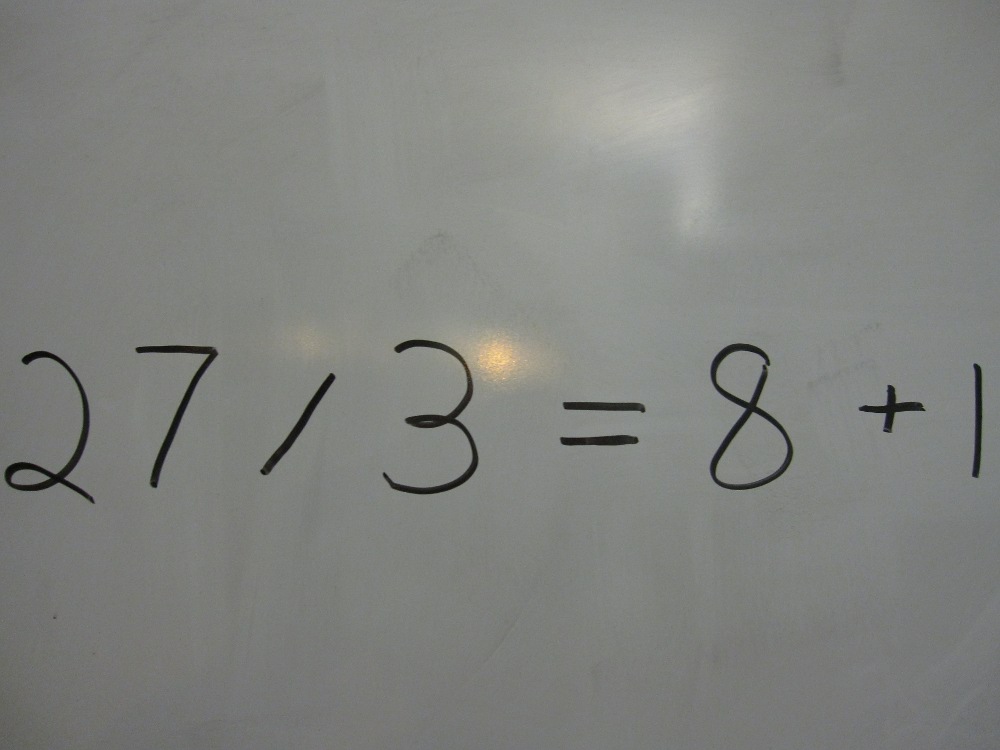 27 / 3 = 8 + 1